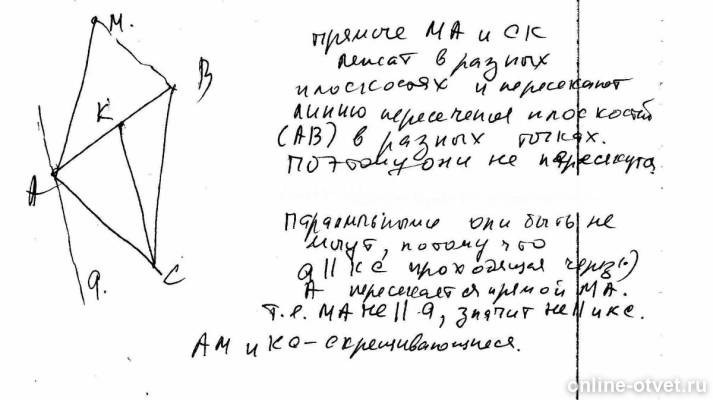 M.
B
K
A
C
a.
прямые MA и CK
лежат в разных
плоскостях и пересекают
линию пересечения плоскостей
(AB) в разных точках.
Поэтому они не пересекутся
Параллельными они быть не
могут, потому что
a || KC проходящая через (·)
A пересекается прямой MA.
т.е. MA не || a, значит не || и KC.
AM и KC - скрещивающиеся.
online-otvet.ru